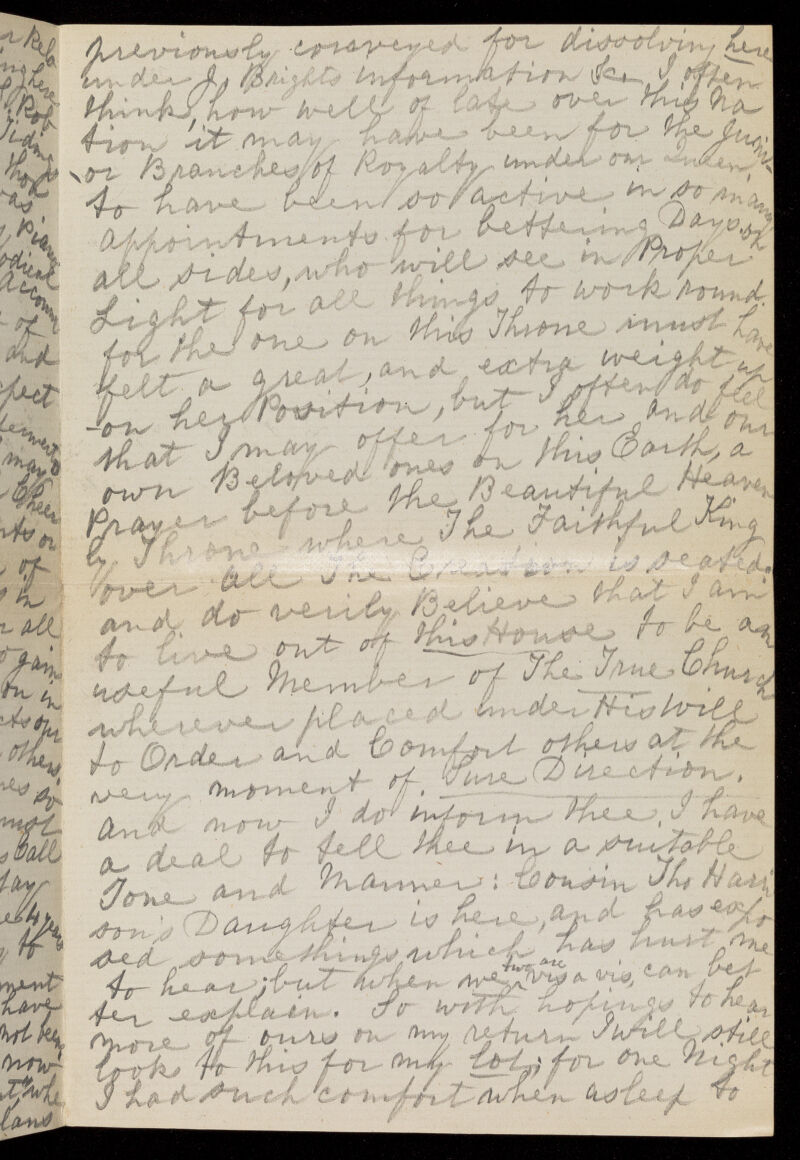 previously conveyed for dissolving here
under J. Brights information &c I often
think, how well of late over this Na
tion it may have been for the Juni-
-or Branches of Royalty under our Queen
to have been so active in so many
appointments for bettering Days on
all sides, who will see in Proper
Light for all things to work round.
for the one on this Throne must have
felt a great, and extra weight up
-on her Position, but I often do feel
that I may offer for her and our
own Beloved ones on this Earth, a
Prayer before the Beautiful Heaven
ly Throne where The Faithful King
over all The Creation is seated.
and do verily Believe that I am
to live out of this House to be an
useful Member of The True Church
wherever placed under His Will
to Order and Comfort others at the
very moment of Sure Direction.
and now I do inform thee, I have
a deal to tell thee in a suitable
Tone and Manner: Cousin Tho Harri
son's Daughter is here, and has expo
sed somethings which has hurt me
to hear; but when we two are vis a vis, can bet
ter explain. So with hopings to hear
more of ours on my return I will still
look to this for my lot; for one Night
I had such comfort when asleep to